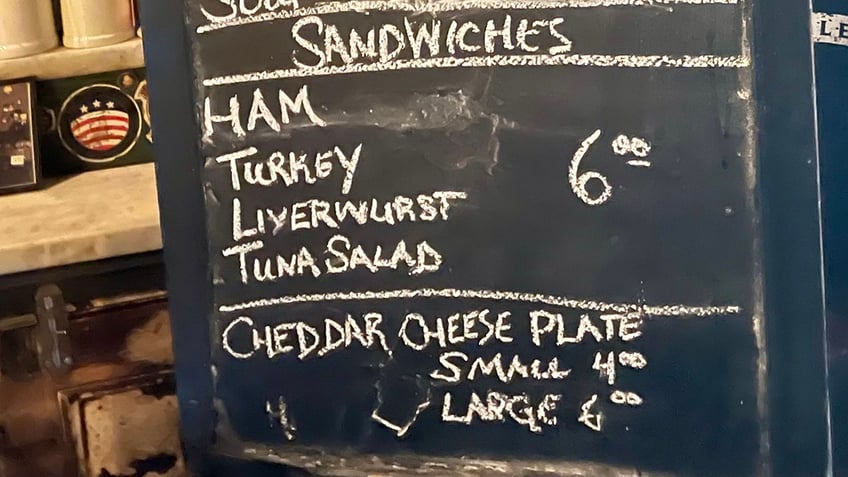 SANDWICHES
HAM
TURKEY 6.00
LIVERWURST
TUNA SALAD
CHEDDAR CHEESE PLATE
SMALL 4.00
LARGE 6.00